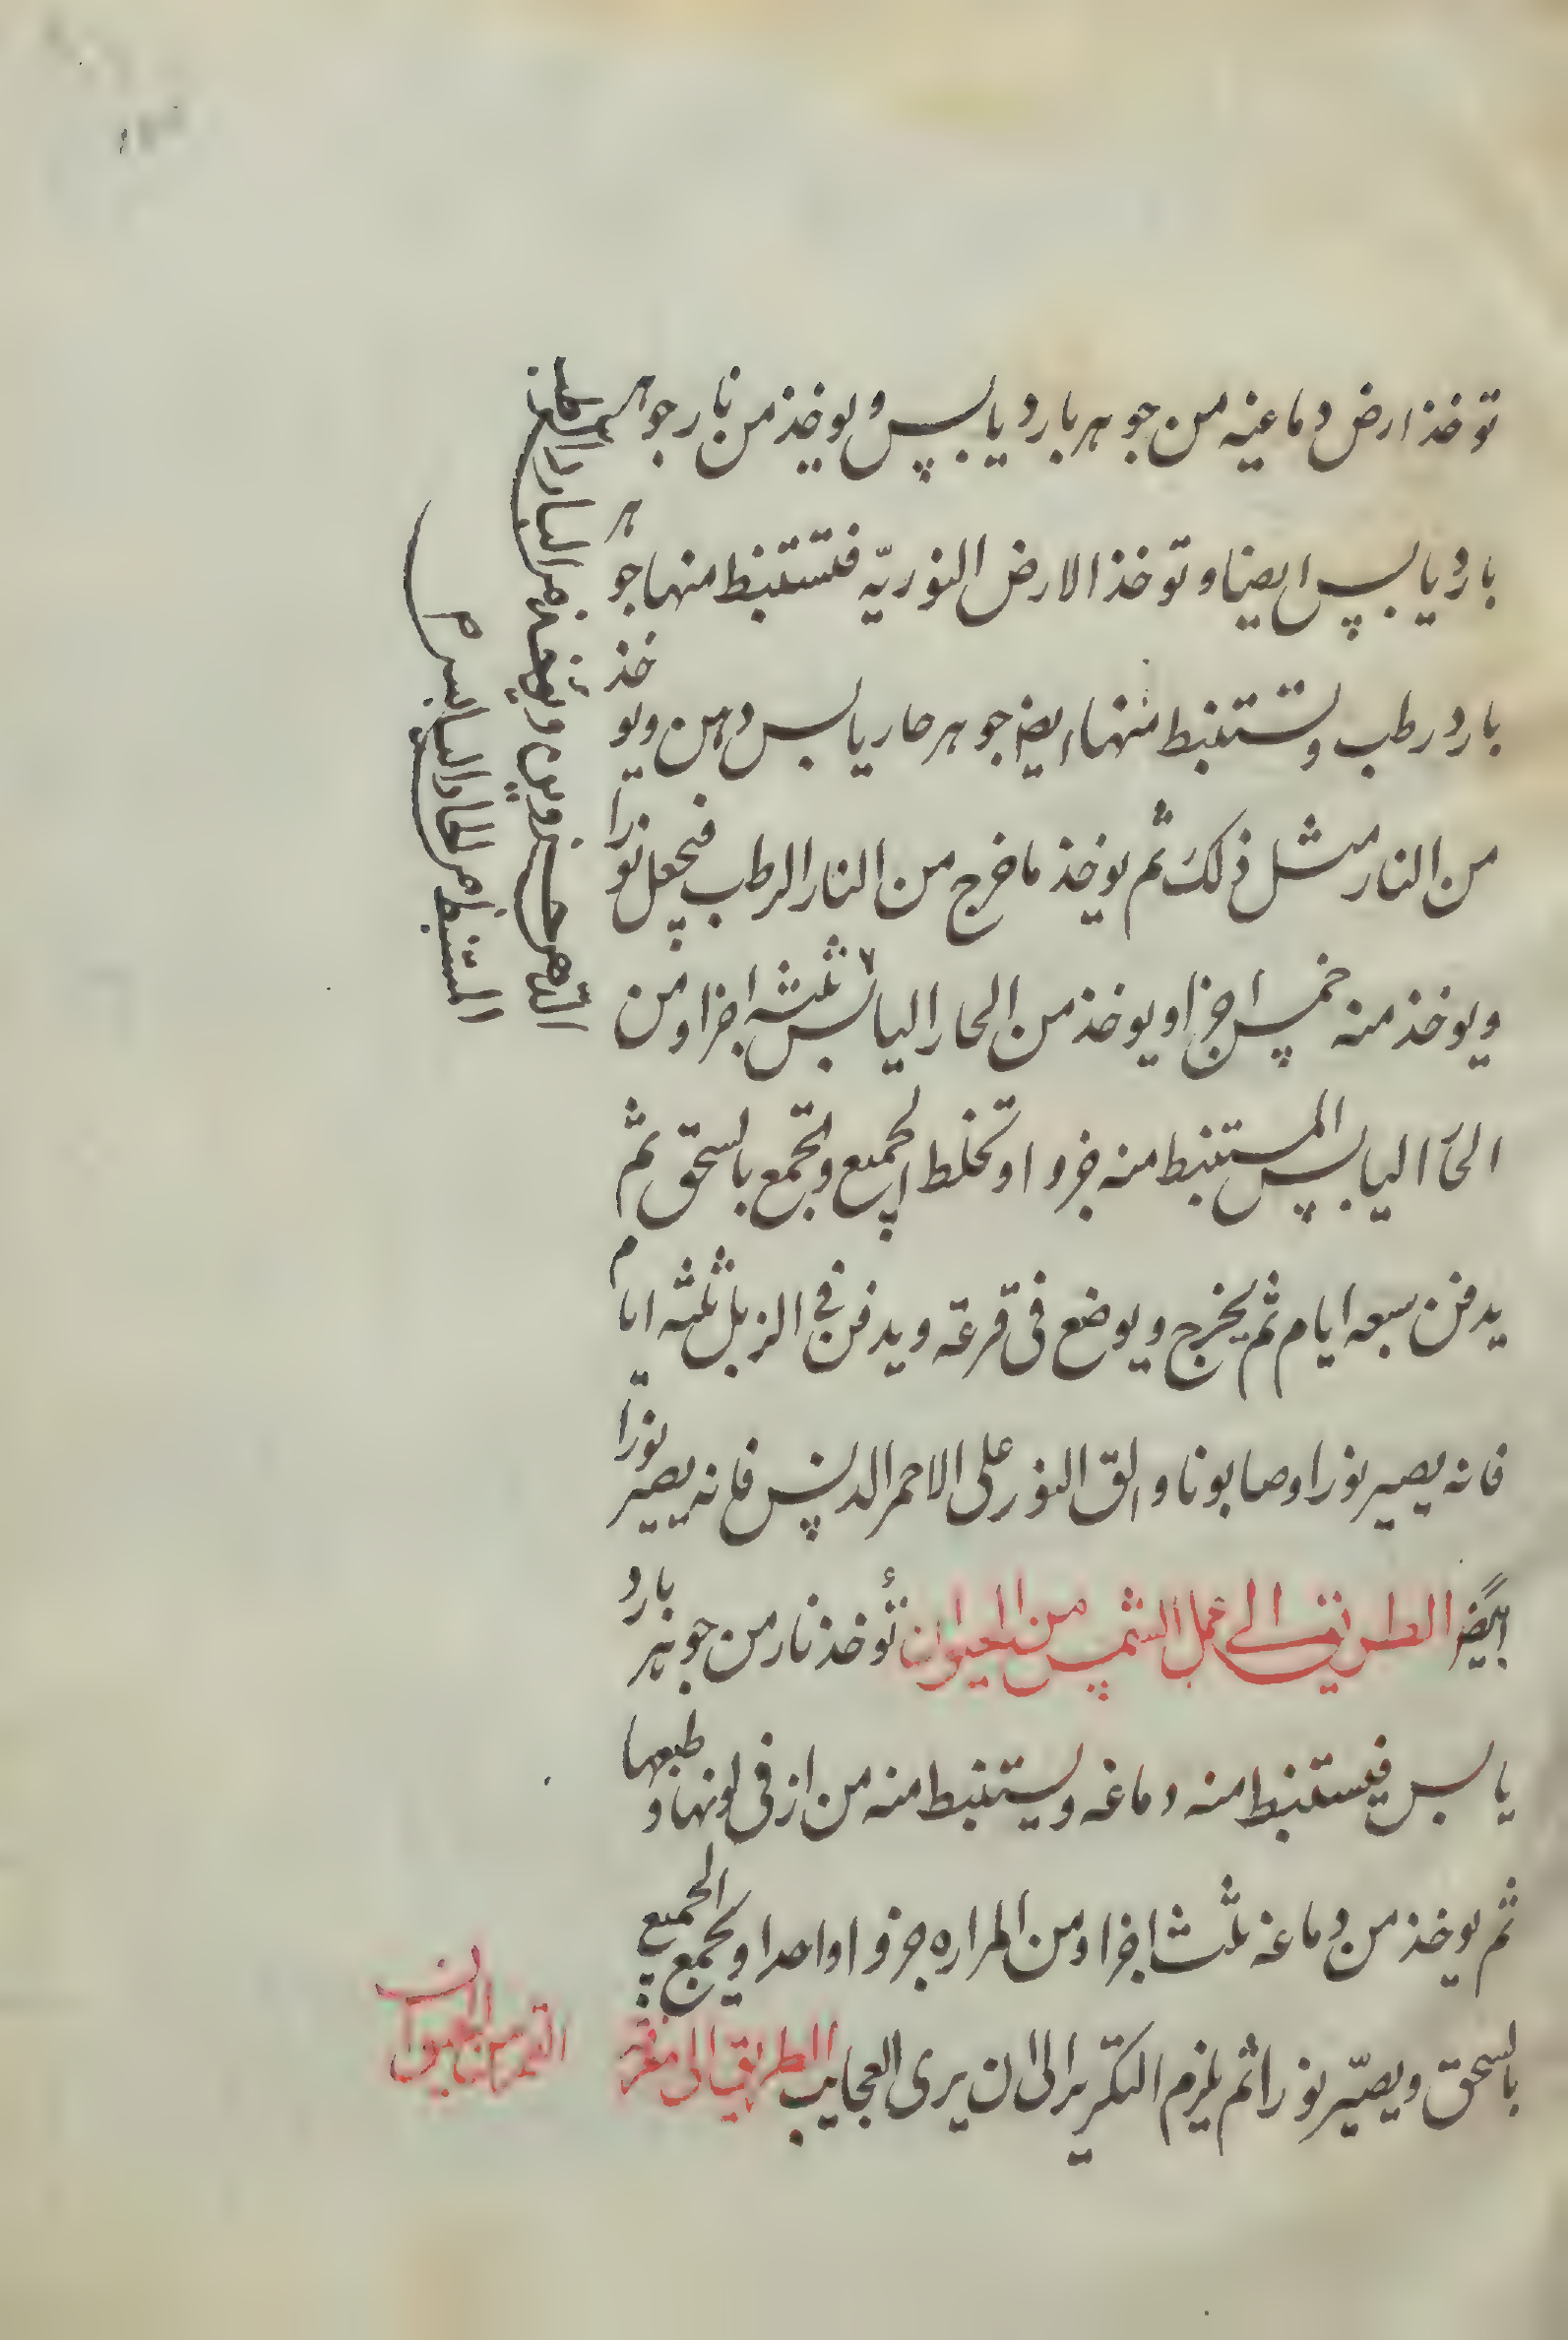 توخذ ارض دماعيه من جوهر بارد يابس ويوخذ من نار جوهر
بارد يابس ايضا وتوخذ الارض النوريّه فتستنبط منها جوهر
بارد رطب وتستنبط منها ايضا جوهر حار يابس دهن ويوخذ
من النار مثل ذلك ثم يوخذ ما خرج من النار الرطب فيجعل نورا
ويوخذ منه خمس اجزا ويوخذ من الحار اليابس ثلثه اجزا ومن
الحار اليابس المستنبط منه جزوا وتخلط الجميع وتجمع بالسحق ثم
يدفن سبعه ايام ثم يخرج ويوضع فى قرعة ويدفن في الزبل ثلثه ايام
فانه يصير نورا وصابونا والق النور على الاحمر الدنس فانه يصير نورا
ابيض الطريق الى عمل الشمس من الحيوان تؤخذ نار من جوهر بارد
يابس فيستنبط منه دماغه ويستنبط منه من ار فى لونها وطبعها
ثم يوخذ من دماغه ثلث اجزا ومن المراره جزوا واحدا ويجمع الجميع
بالسحق ويصيّر نورا ثم يلزم التكرير الى ان يرى العجايب الطريق الى معرفة
القمر من الحيوان
البارد الرطب
المستنبط من الحار اليابس